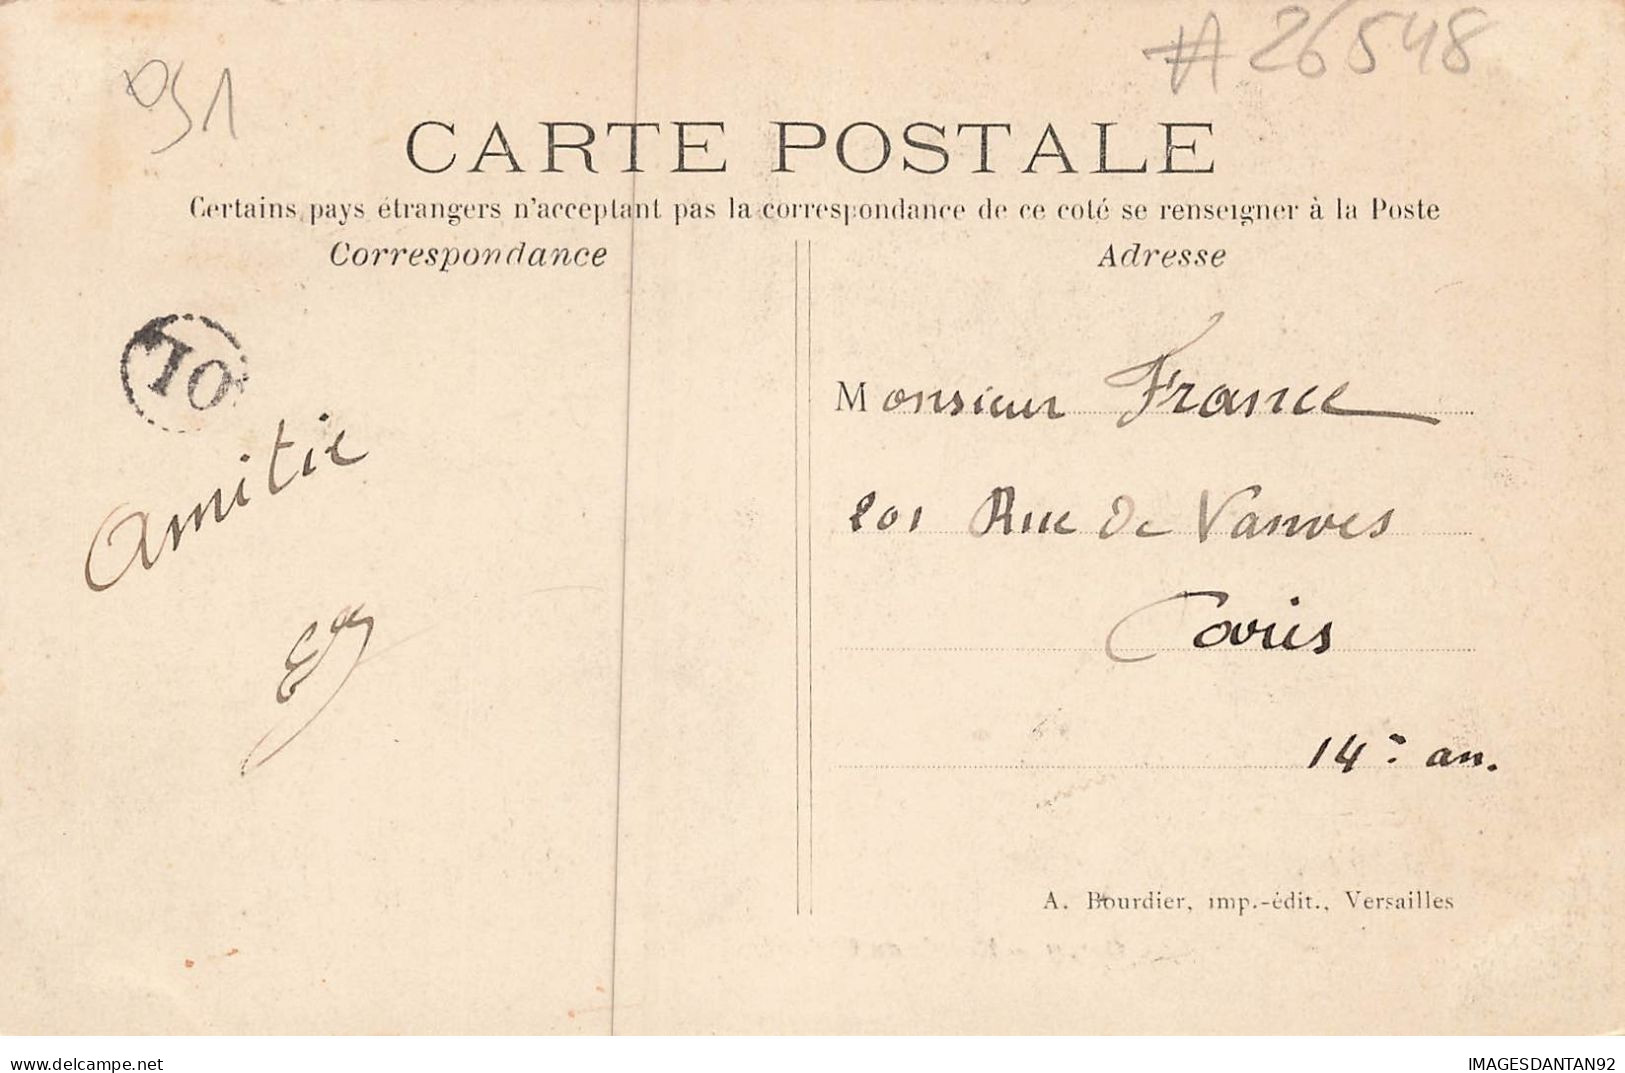 # 26548
91
CARTE POSTALE
Certains pays étrangers n'acceptant pas la correspondance de ce coté se renseigner à la Poste
Correspondance
Adresse
OL
Amitié
Monsieur France
201 Rue de Vanves
Paris
14e an.
A. Bourdier, imp.-édit., Versailles
delcampe.net
IMAGESDANTAN92